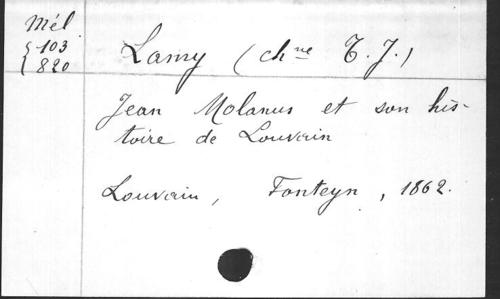 Mél
103
820
Lamy (chne T. J.)
Jean Molanus et son his-
toire de Louvain
Louvain, Fonteyn, 1862.